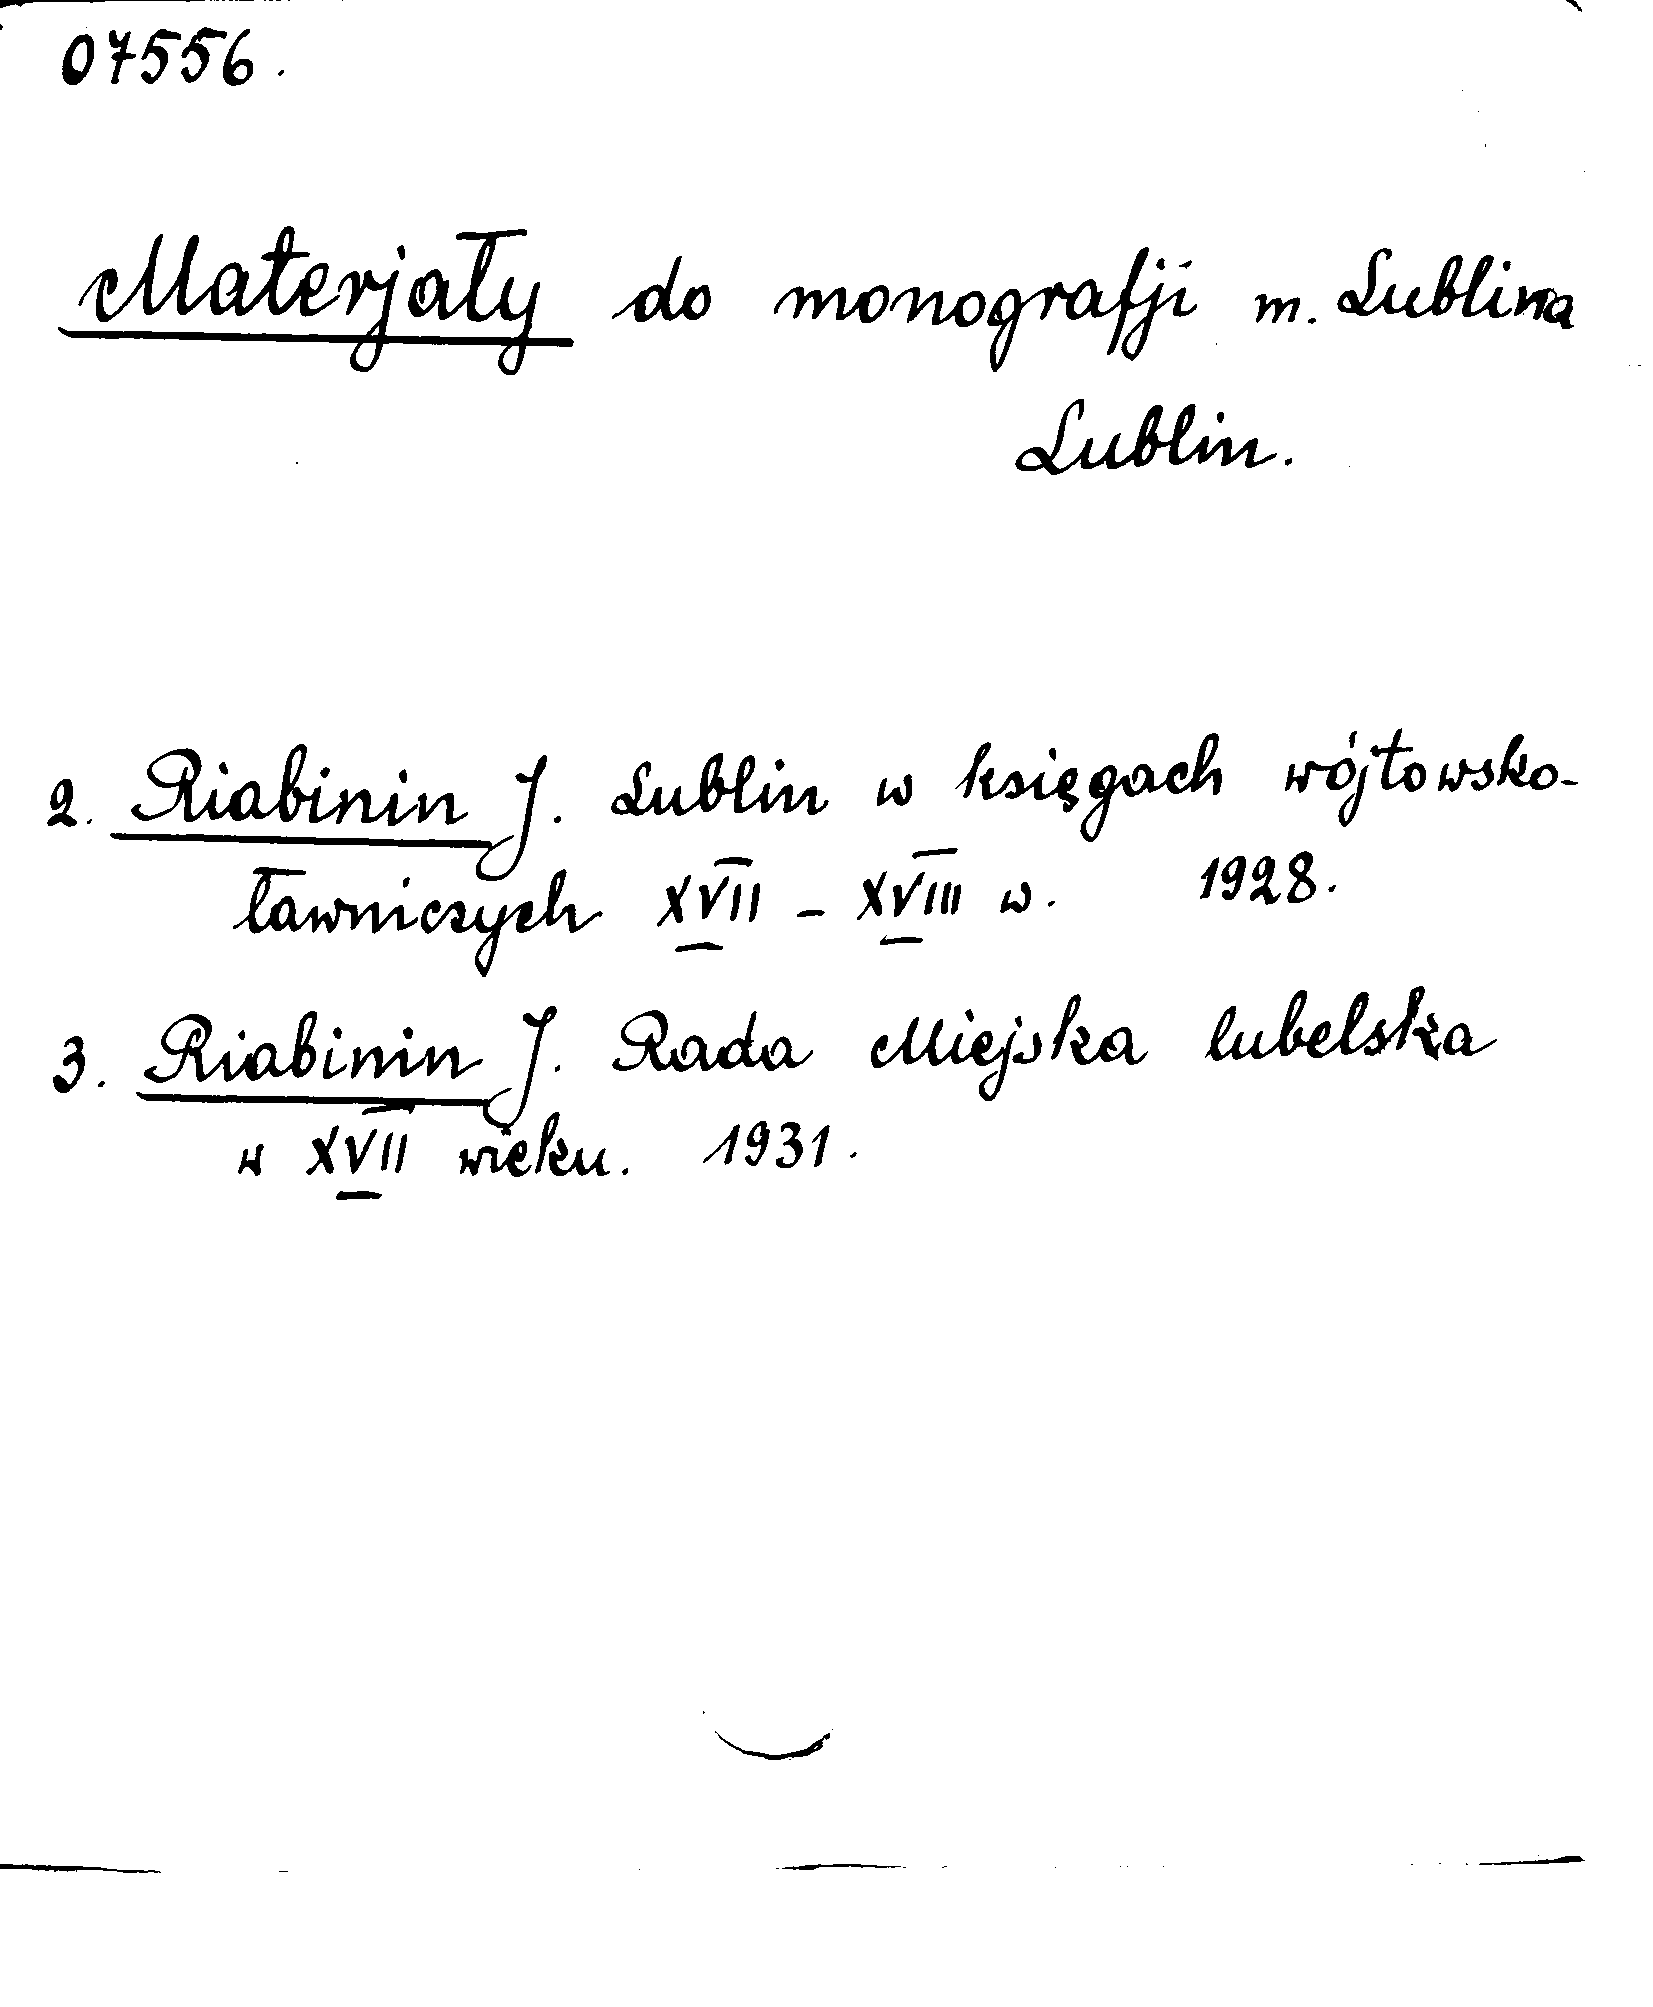 07556.
Materjały do monografji m. Lublina
Lublin.
2. Riabinin J. Lublin w księgach wójtowsko-
ławniczych XVII - XVIII w. 1928.
3. Riabinin J. Rada Miejska lubelska
w XVII wieku. 1931.